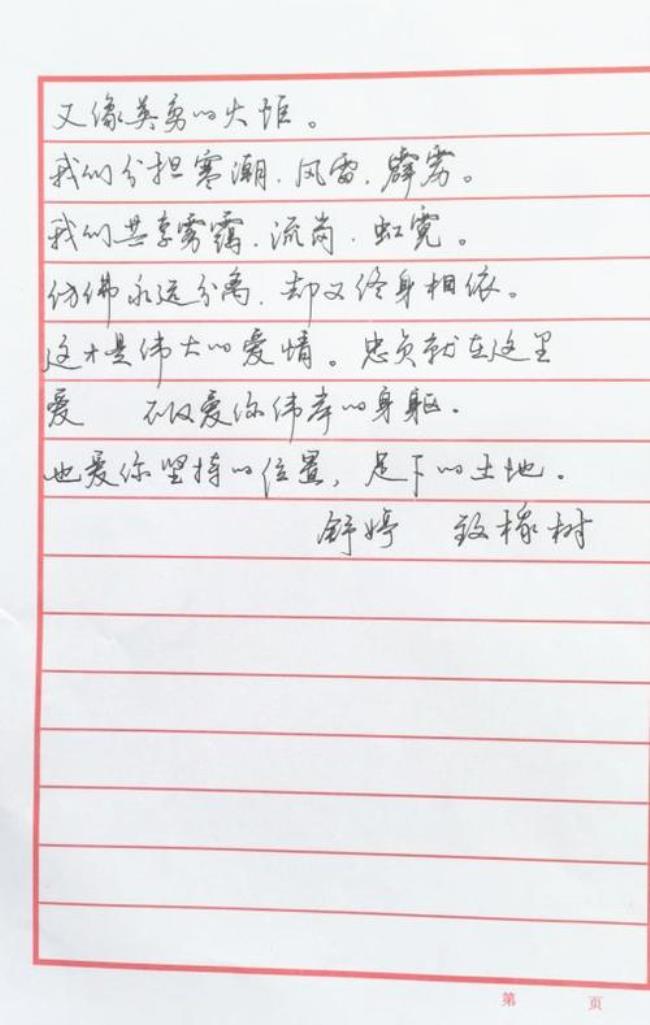 又像英勇的火炬。
我们分担寒潮、风雷、霹雳。
我们共享雾霭、流岚、虹霓。
仿佛永远分离，却又终身相依。
这才是伟大的爱情。忠贞就在这里
爱 不仅爱你伟岸的身躯.
也爱你坚持的位置，足下的土地。
舒婷 致橡树
第 页